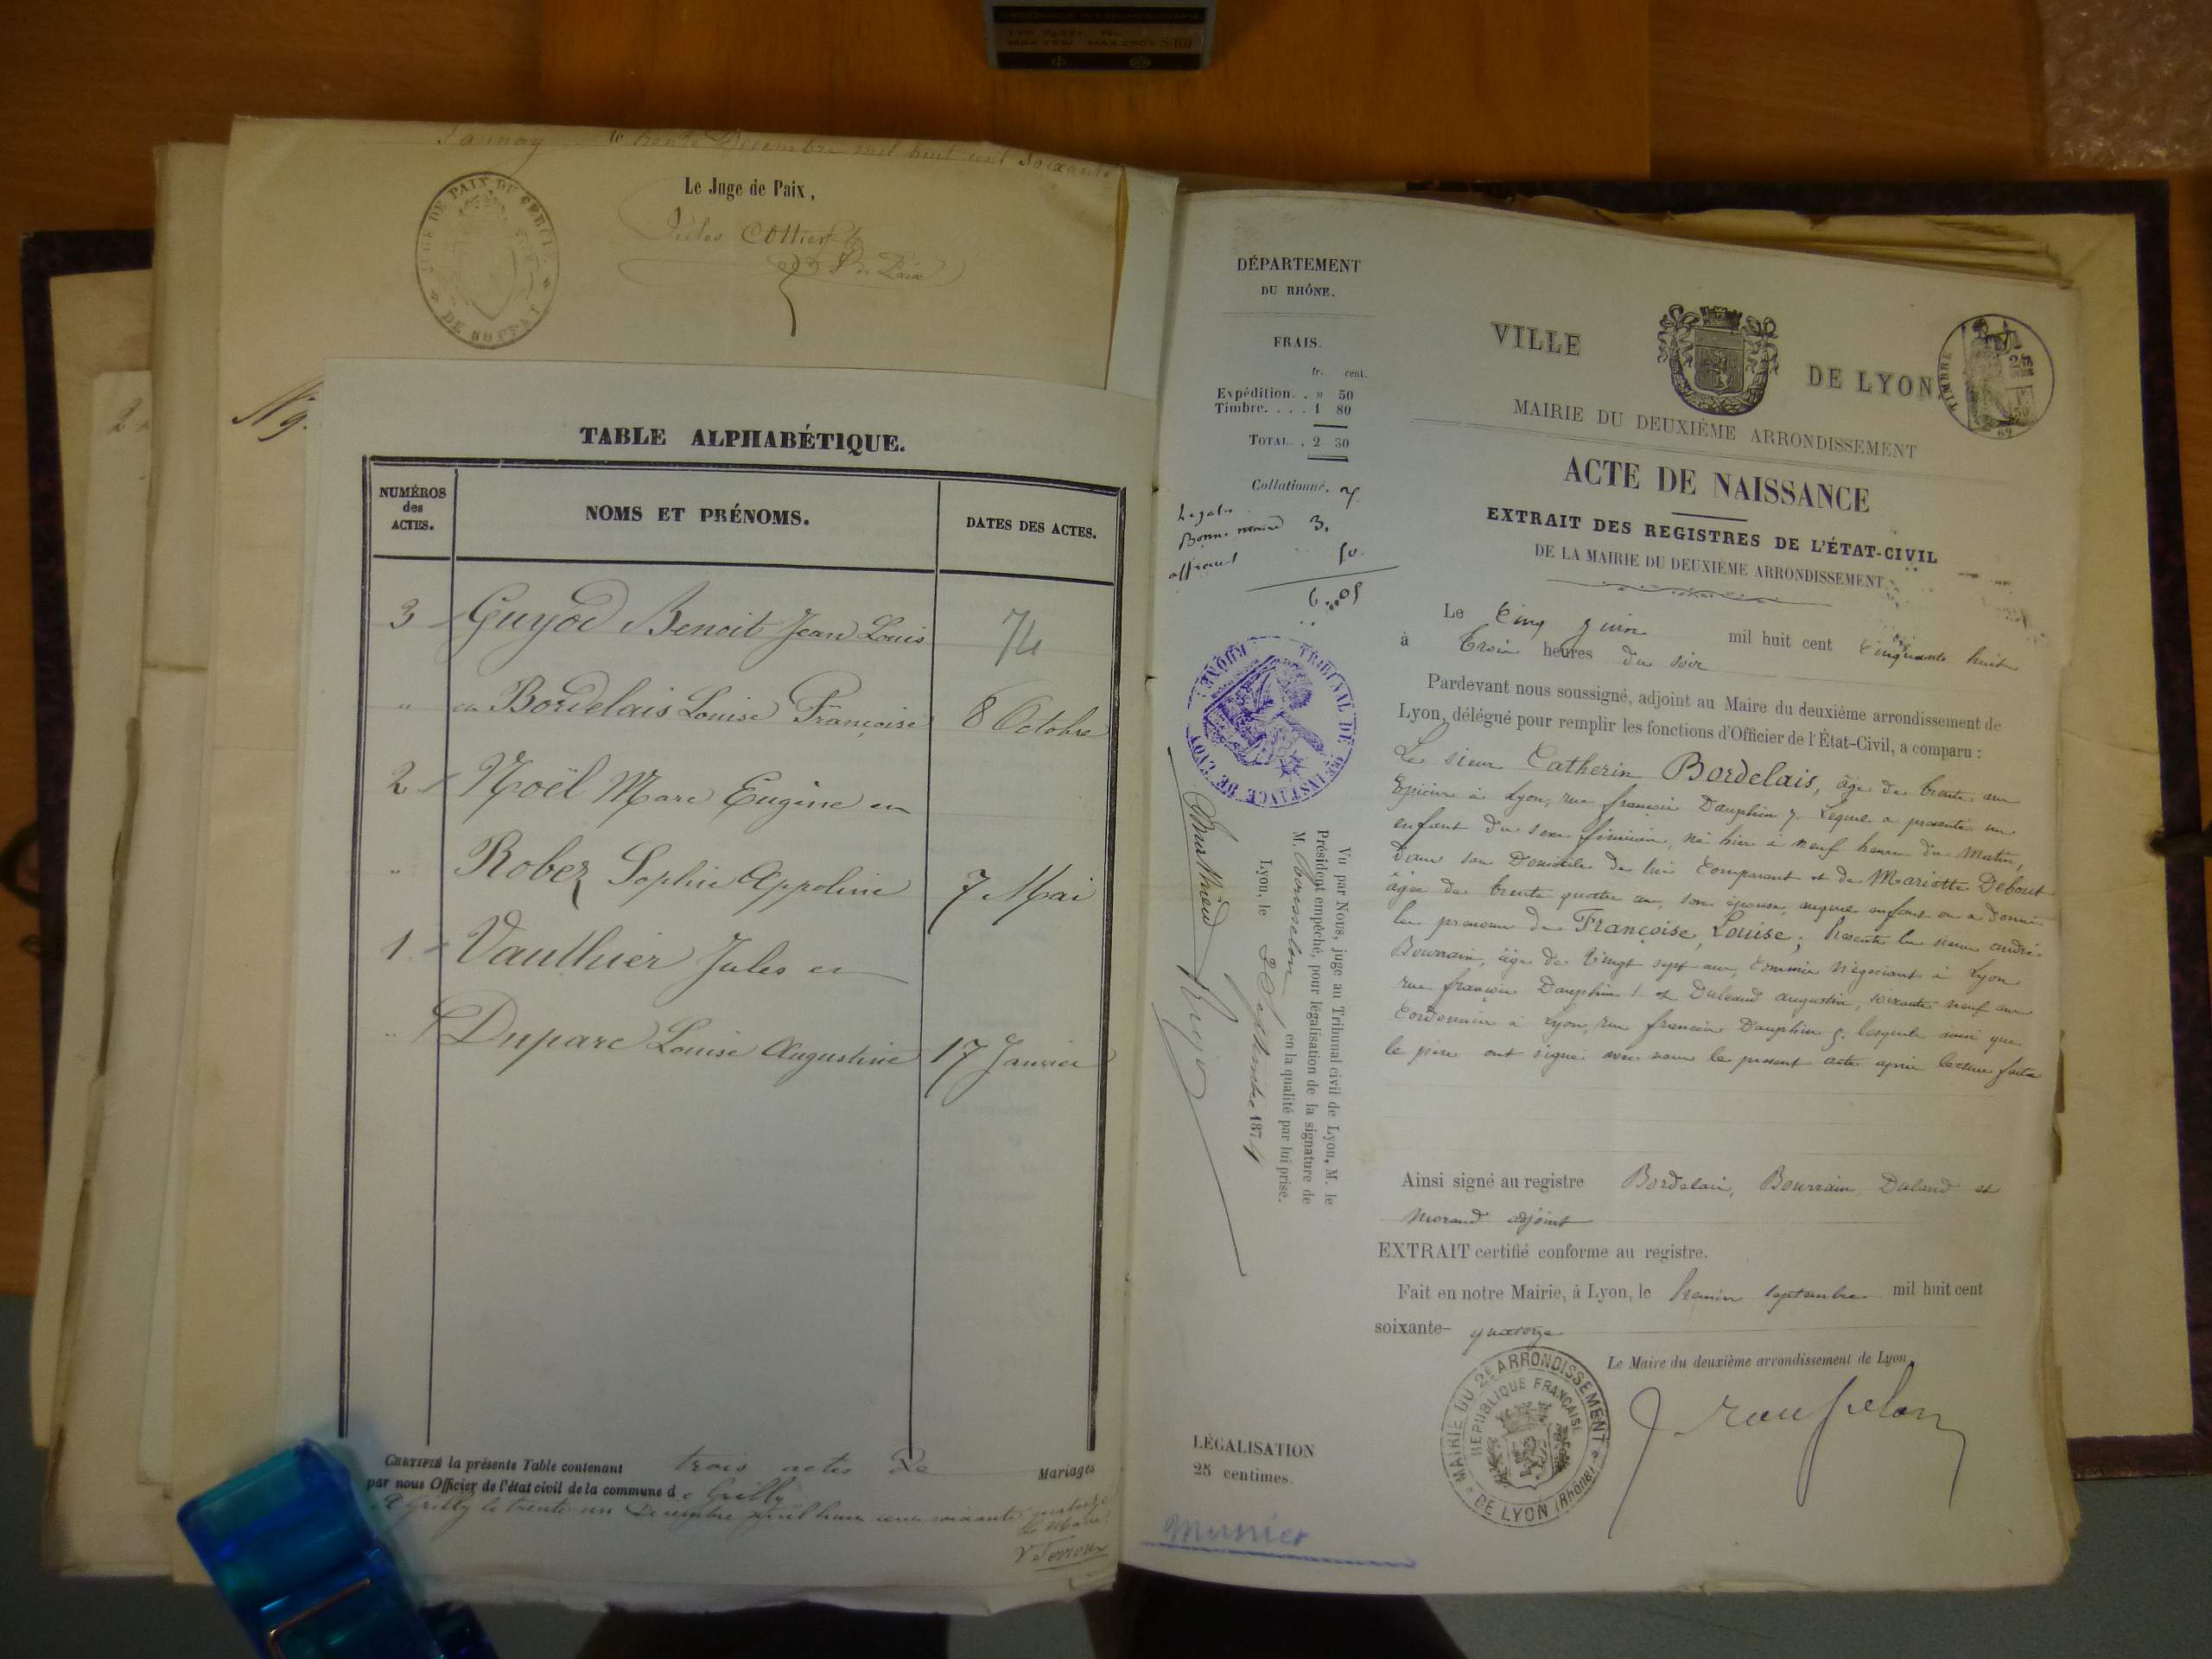 Le Juge de Paix,
N° 9.
TABLE ALPHABÉTIQUE.
NUMÉROS
des
ACTES.
NOMS ET PRÉNOMS.
DATES DES ACTES.
3 Guyod Benoit Jean Louis 74
" en Bordelais Louise Françoise 8 Octobre
2 Noël Marc Eugène en
" Rober Sophie Appoline 7 Mai
1 Vauthier Jules en
" Duparc Louise Augustine 17 Janvier
CERTIFIÉ la présente Table contenant trois actes de Mariages
par nous Officier de l'état civil de la commune de Grilly
A Grilly le trente un Décembre mil huit cent soixante quatorze
Le Maire
DÉPARTEMENT
DU RHÔNE.
FRAIS.
fr. cent.
Expédition. . » 50
Timbre. . . . 1 80
TOTAL. . 2 30
Collationné.
3.
50.
6,,05
TRIBUNAL DE 1RE INSTANCE DE LYON (RHÔNE)
Vu par Nous, juge au Tribunal civil de Lyon, M. le
Président empêché, pour légalisation de la signature de
M. en la qualité par lui prise.
Lyon, le 2 Septembre 1874
LÉGALISATION
25 centimes.
Munier
VILLE DE LYON
TIMBRE
MAIRIE DU DEUXIÈME ARRONDISSEMENT
ACTE DE NAISSANCE
EXTRAIT DES REGISTRES DE L'ÉTAT-CIVIL
DE LA MAIRIE DU DEUXIÈME ARRONDISSEMENT
Le Cinq juin mil huit cent Cinquante huit
à Trois heures du soir
Pardevant nous soussigné, adjoint au Maire du deuxième arrondissement de
Lyon, délégué pour remplir les fonctions d'Officier de l'État-Civil, a comparu :
Le sieur Catherin Bordelais, âgé de trente ans
Epicier à Lyon, rue françois Dauphin 7. Lequel a présenté un
enfant du sexe féminin, né hier à neuf heures du Matin,
dans son Domicile de lui Comparant et de Mariette Debout
âgée de trente quatre ans, son épouse, auquel enfant on a donné
les prénoms de Françoise, Louise; présents les sieurs andré
Bourrain, âgé de Vingt sept ans, Commis Négociant à Lyon
rue françois Dauphin 1. et Duland augustin, soixante neuf ans
Cordonnier à Lyon, rue françois Dauphin 5. lesquels ainsi que
le père ont signé avec nous le présent acte après lecture faite
Ainsi signé au registre Bordelais, Bourrain, Duland et
Morand adjoint
EXTRAIT certifié conforme au registre.
Fait en notre Mairie, à Lyon, le Premier septembre mil huit cent
soixante-quatorze
Le Maire du deuxième arrondissement de Lyon,
MAIRIE DU 2E ARRONDISSEMENT DE LYON (Rhône)
RÉPUBLIQUE FRANÇAISE